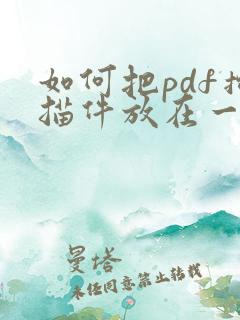 如何把pdf扫
描件放在一
曼塔
未经同意禁止转载